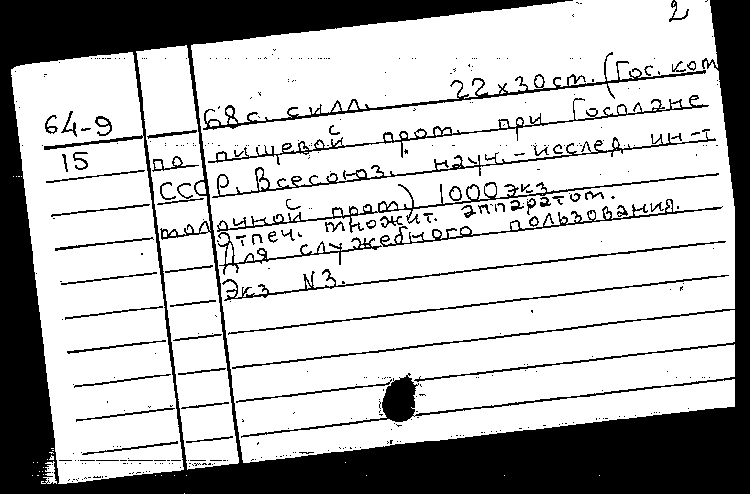 2
64-9 68 с. с илл. 22 х 30 ст. (Гос. ком
15 по пищевой пром. при Госплане
СССР. Всесоюз. науч.-исслед. ин-т
молочной пром.) 1000 экз.
Отпеч. множит. аппаратом.
Для служебного пользования.
Экз N3.